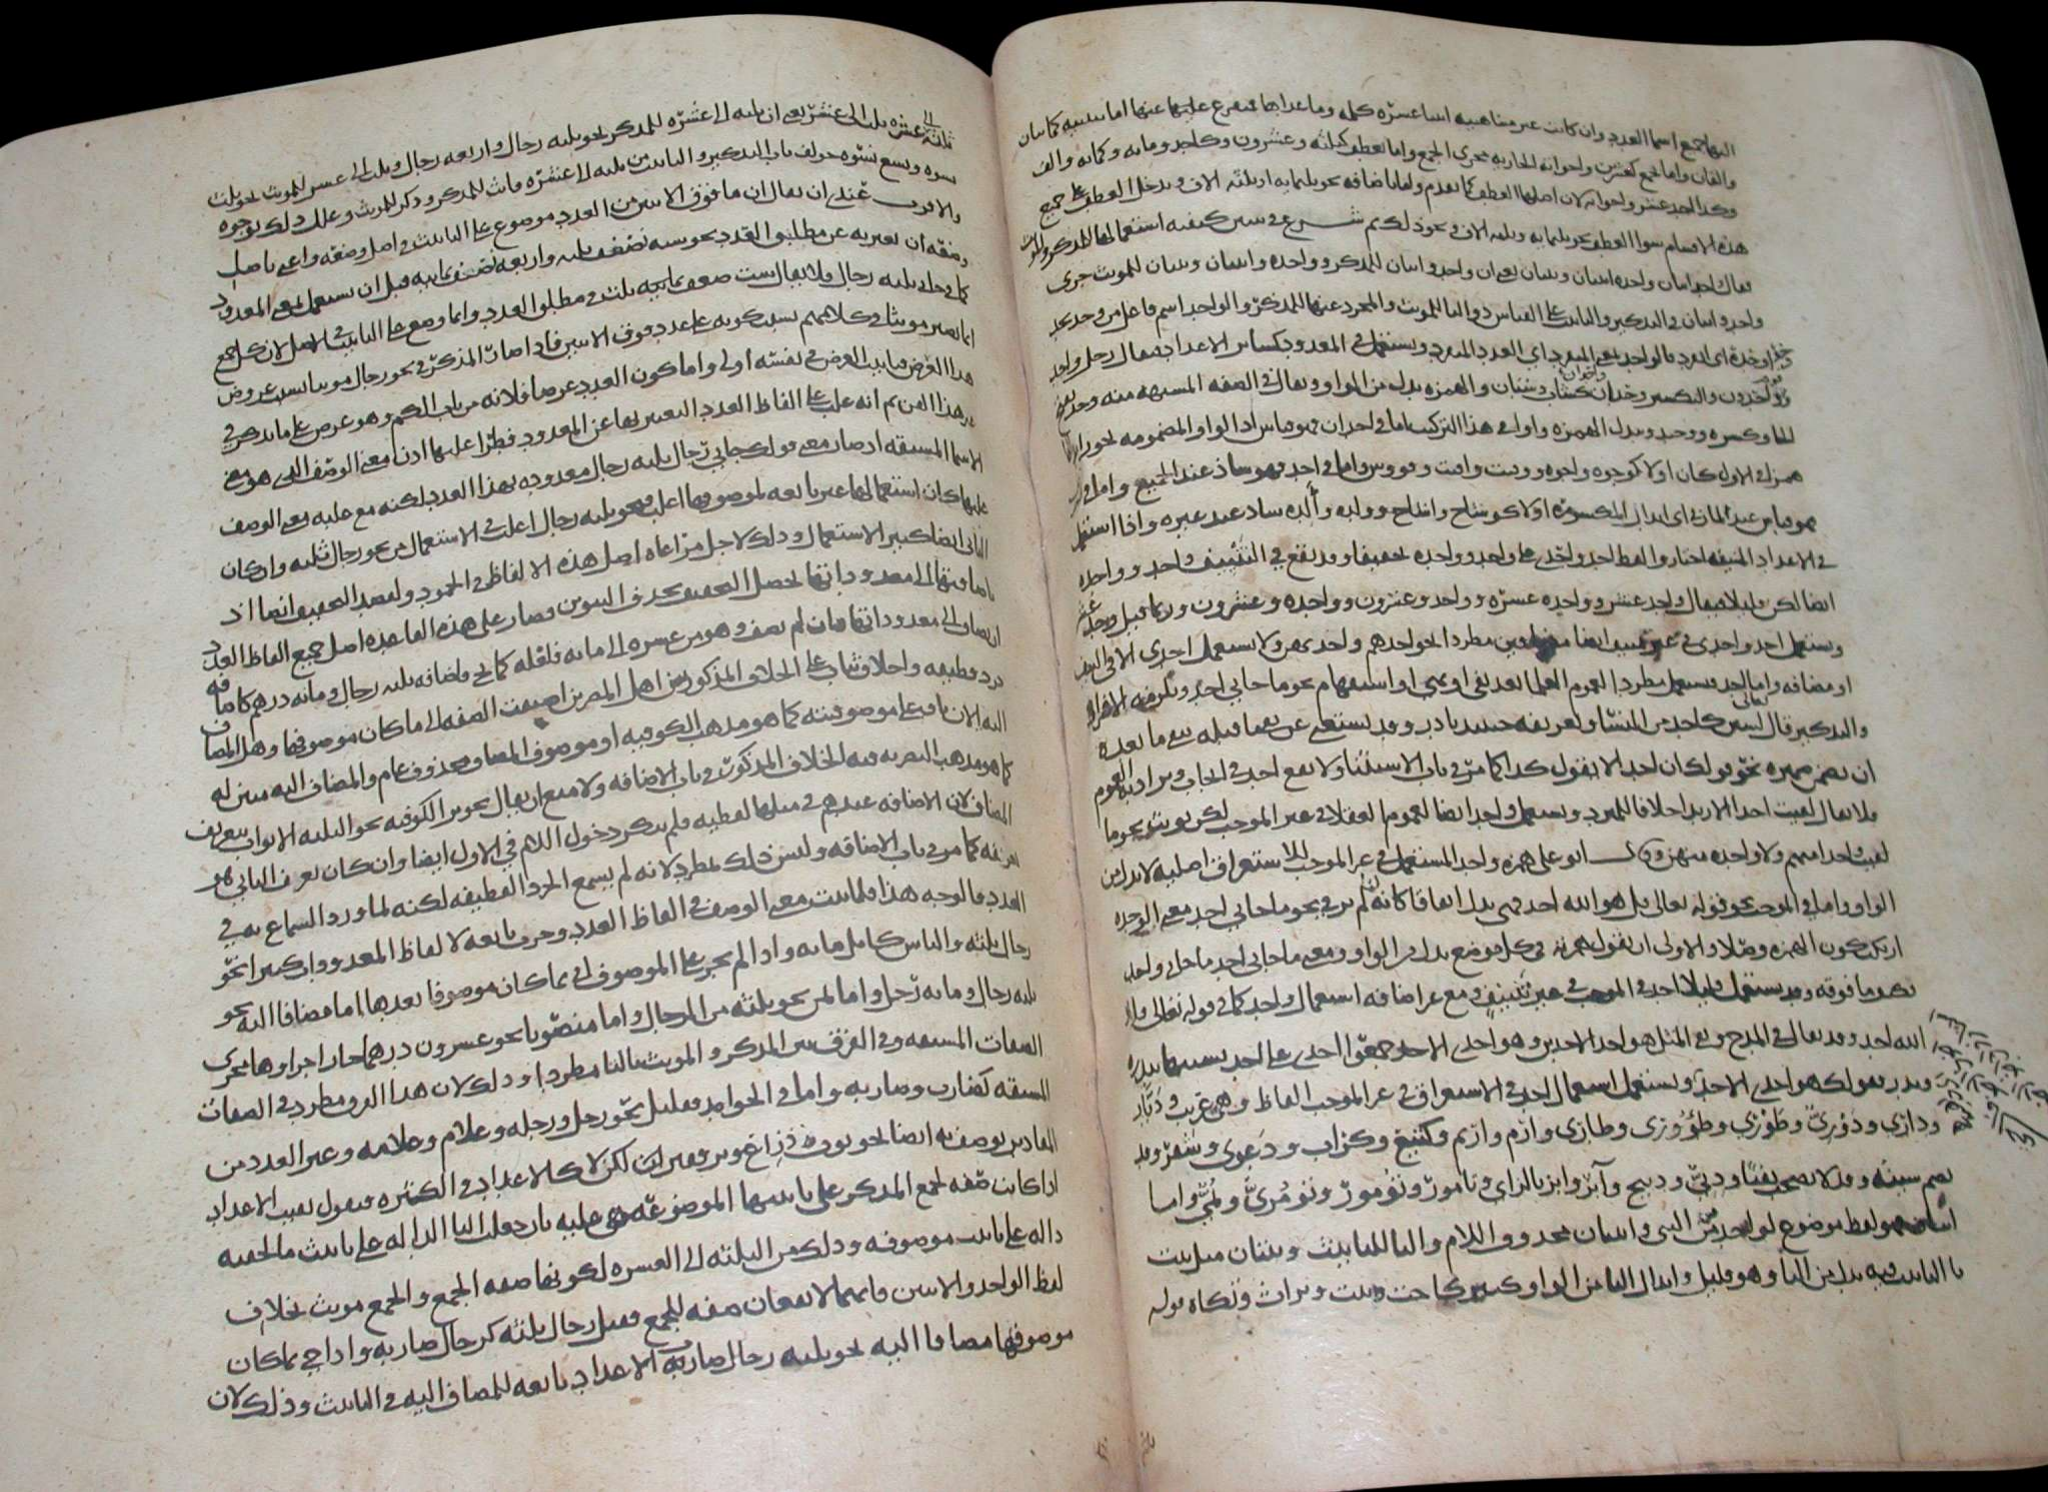 اليها جميع اسما العدد وان كانت غير متناهيه اثنا عشره كلمه وما عداها متفرع عليها عنها اما بتثنيه كمائتان
والفان واما بجمع كعشرين واخواته الجاريه مجرى الجمع واما بعطف كثلثه وعشرون وكاحد ومايه وكمائه والف
وكذا احد عشر واخواته لان اصلها العطف كما تقدم واما باضافه نحو ثلثمايه او ثلثه الاف وقد يدخل العطف على جميع
هذه الاقسام سوا العطف نحو ثلثمايه وثلثه الاف ونحو ذلك ثم شرع في تبيين كيفيه استعمالها للمذكر والمونث
فقال واحد اثنان واحده اثنتان وثنتان يعني ان واحد واثنان للمذكر وواحده واثنتان وثنتان للمونث جرى
واحد واثنان في التذكير والتانيث على القياس ذو التا للمونث والمجرد عنها للمذكر والواحد اسم فاعل من وحد يحد
وحدا وحدة اى انفرد فالواحد بمعنى المنفرد اي العدد المنفرد ويستعمل في المعدود كسائر الاعداد فيقال رجل واحد
وقوم واحدون والتكسير وحدان كشاب وشبان واحدان والهمزه بدل من الواو ويقال في الصفه المشبهه منه وحد بفتح
الفا وكسره ووحيد وتبدل الهمزه واوا في هذا التركيب اما في احدان فهو قياس اذ الواو المضمومه نحو ان
همزه في الاول كان او لا كوجوه واجوه ووقت واقت وفووس واما في احد فهو شاذ عند الجميع واما في
فهو قياس عند المازني اى ابدال المكسوره اولا كوشاح واشاح وولده وألده شاذ عند غيره واذا استعمل
في الاعداد المنيفه اختاروا لفظ احد واحدى على واحد وواحده تخفيفا وقد تقع في التنييف واحد وواحده
ايضا لكن قليلا فيقال واحد عشر وواحده عشره وواحد وعشرون وواحده وعشرون وربما قيل وحد عشر
ويستعمل احد واحدى في غير تنييف ايضا مضافين مطردا نحو احدهم واحدى بهن ولا يستعمل احدى الا في النيف
او مضافه واما احد فيستعمل مطردا لعموم العلما بعد نفي او نهي او استفهام نحو ما جاني احد ويلزمه الافراد
والتذكير قال تعالى لستن كاحد من النسا وتعريفه حينئذ نادر وقد يستغنى عن نفي ما قبله بنفي ما بعده
ان تضمن ضميره نحو قولك ان احدا لا يقول كذا كما مر في باب الاستثنا ولا يقع احد في ايجاب يراد به العموم
فلا يقال لقيت احدا الا زيدا خلافا للمبرد ويستعمل واحد ايضا لعموم العقلا في غير الموجب لكن يونث نحو ما
لقيت واحدا منهم ولا واحده منهن وقال ابو على همزه احد المستعمل في غير الموجب للاستغراق اصليه لا بدل من
الواو واما في الموجب نحو قوله تعالى قل هو الله احد فهي بدل اتفاقا كانه لما لم ير في نحو ما جاني احد معنى الوحده
ارتكب كون الهمزه اصلا والاولى ان نقول همزته في كل موضع بدل من الواو ومعنى ما جاني احد ما جاني واحد
فكيف ما فوقه وقد يستعمل قليلا احد في الموجب في غير تنييف ومع غير اضافه استعمال واحد كما في قوله تعالى قل هو
الله احد وقد يقال في المدح ونفي المثل هو احد الاحدين وهو احدى الاحد جمعوا احدى على احد تشبيها بسدره
وسدر فقولك هو احدى الاحد ويستعمل استعمال احد في الاستغراق في غير الموجب الفاظ وهي غريب وديار
وداري ودوري وطوري وطووري وطاري وارم واريم وكتيع وكراب ودعوي وشفر وقد
يضم شينه وقد لا يصحب نفيا ودبي ودبيج وآبر وابز بالزاي وتامور وتومور وتومري ونمي واما
اثنان فهو لفظ موضوع لواحدين من الثني واثنان محذوف اللام والتا للتانيث وثنتان مثل بنت
تا التانيث فيه بدل من اليا وهو قليل وابدال التا من الواو كثير كاخت وبنت وتراث وتكاه قوله
ثلثه عشره ثلث الى عشر يعني ان ثلثه الى عشره للمذكر نحو ثلثه رجال واربعه رجال وثلث الى عشر للمونث نحو ثلث
نسوه وتسع نسوه خولف باب التذكير والتانيث من ثلثه الى عشره فانث للمذكر وذكر للمونث وعلل ذلك بوجوه
والاقرب عندي ان يقال ان ما فوق الاثنين من العدد موضوع على التانيث في اصل وضعه واعني باصل
وضعه ان يعبر به عن مطلق العدد نحو سته ضعف ثلثه واربعه نصف ثمانيه قبل ان يستعمل بمعنى المعدود
كما في جاني ثلثه رجال فلا يقال ست ضعف ثلث في مطلق العدد وانما وضع على التانيث في الاصل لان كل جمع
انما يصير مونثا في كلامهم بسبب كونه على عدد فوق الاثنين فاذا صار المذكر في نحو رجال مونثا بسبب عروض
هذا العرض فتانيث العرض في نفسه اولى واما كون العدد عرضا فلانه من باب الكم وهو عرض على ما يذكر في
غير هذا الفن ثم انه غلب على الفاظ العدد التعبير بها عن المعدود فطرا عليها اذن معنى الوصف الذي هو معنى
الاسما المشتقه اذ صار معنى قولك جاني رجال ثلثه رجال معدوده بهذا العدد لكنه مع غلبه معنى الوصف
عليها كان استعمالها غير تابعه لموصوفها اغلب فنحو ثلثه رجال اغلب في الاستعمال من نحو رجال ثلثه وان كان
الثاني ايضا كثير الاستعمال وذلك لاجل مراعاه اصل هذه الالفاظ في الجمود ولقصد التخفيف ايضا اذ
باضافتها الى معدوداتها يحصل التخفيف بحذف التنوين فصار على هذه القاعده اصل جميع الفاظ العدد
ان يضاف الى معدوداتها فان لم يضف وهو من عشره الى مائه فلعله كما يجي فاضافه ثلثه رجال ومائه درهم كاضافه
جرد قطيفه واخلاق ثياب على الخلاف المذكور بين اهل المصرين اضيفت الصفه الى ما كان موصوفها وهل المضاف
اليه الان باق على موصوفيته كما هو مذهب الكوفيه او موصوف المضاف محذوف عام والمضاف اليه مبين له
كما هو مذهب البصريه فيه الخلاف المذكور في باب الاضافه ولا مبع ان يقال تجويز الكوفيه نحو الثلثه الاثواب بتعريف
المضاف لان الاضافه عندهم في مثلها لفظيه فلم ينكر دخول اللام في الاول ايضا وان كان تعرف الثاني هو
تعريفه كما مر في باب الاضافه وليس ذلك بمطرد لانه لم يسمع الجرد القطيفه لكنه لما ورد السماع به في
العدد فالوجه هذا فلما ثبت معنى الوصف في الفاظ العدد وجرت تابعه لالفاظ المعدودات كثيرا نحو
رجال ثلثه والناس كابل مائه واذا لم تجر على الموصوف اتي بما كان موصوفا بعدها اما مضافا اليه نحو
ثلثه رجال ومائه رجل واما بمن نحو ثلثه من الرجال واما منصوبا نحو عشرون درهما جاز اجراوها مجرى
الصفات المشتقه في الفرق بين المذكر والمونث بالتا مطردا وذلك لان هذا الفرق مطرد في الصفات
المشتقه كضارب وضاربه واما في الجوامد فقليل نحو رجل ورجله وغلام وغلامه وغير العدد من
المقادير يوصف به ايضا نحو ثوب ذراع وبر قفيزان لكن لا كالاعداد في الكثره فنقول بقيت الاعداد
اذا كانت صفه لجمع المذكر على تانيثها الموضوعه هي عليه بان جعلت التا الداله على تانيث ما لحقته
داله على تانيث موصوفه وذلك من الثلثه الى العشره لكونها صفه الجمع والجمع مونث بخلاف
لفظ الواحد والاثنين فانهما لا يقعان صفه للجمع فقيل رجال ثلثه كرجال ضاربه واذا جي بما كان
موصوفها مضافا اليه نحو ثلثه رجال ضاربه الاعداد تابعه للمضاف اليه في التانيث وذلك لان